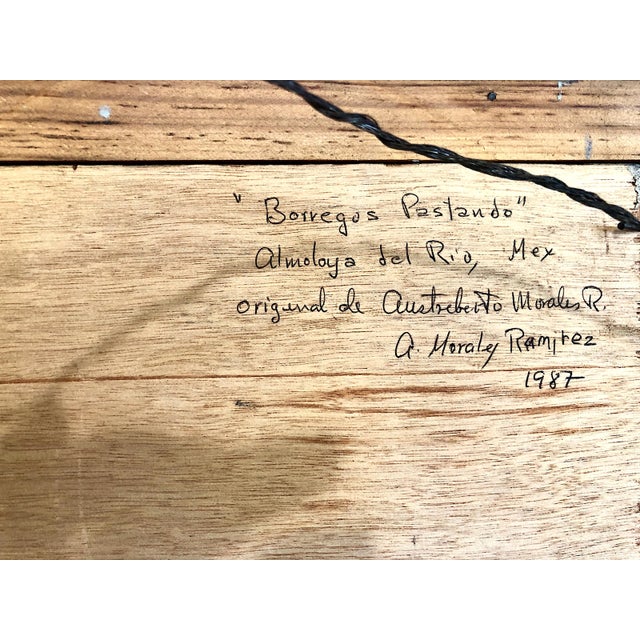 "Borregos Pastando"
Almoloya del Rio, Mex
original de Austreberto Morales R.
A. Morales Ramirez
1987